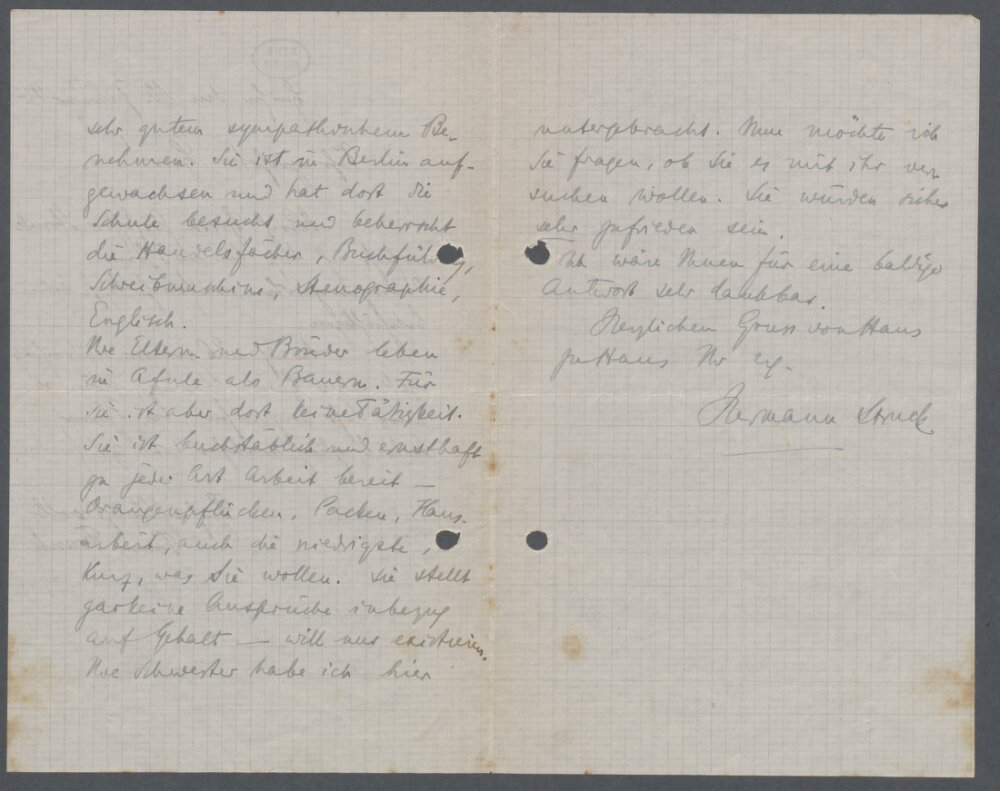 sehr gutem sympathischem Be-
nehmen. Sie ist in Berlin auf-
gewachsen und hat dort die
Schule besucht und beherrscht
die Handelsfächer, Buchführung,
Schreibmaschine, Stenographie,
Englisch.
Ihre Eltern und Brüder leben
in Afule als Bauern. Für
sie ist aber dort keine Tätigkeit.
Sie ist buchstäblich und ernsthaft
zu jeder Art Arbeit bereit —
Orangenpflücken, Packen, Haus-
arbeit, auch die niedrigste,
Kurz, was Sie wollen. Sie stellt
garkeine Ansprüche inbezug
auf Gehalt — will nur existieren.
Ihre Schwester habe ich hier
untergebracht. Nun möchte ich
Sie fragen, ob Sie es mit ihr ver-
suchen wollen. Sie würden sicher
sehr zufrieden sein.
Ich wäre Ihnen für eine baldige
Antwort sehr dankbar.
Herzlichen Gruss von Haus
zu Haus Ihr erg.
Hermann Struck